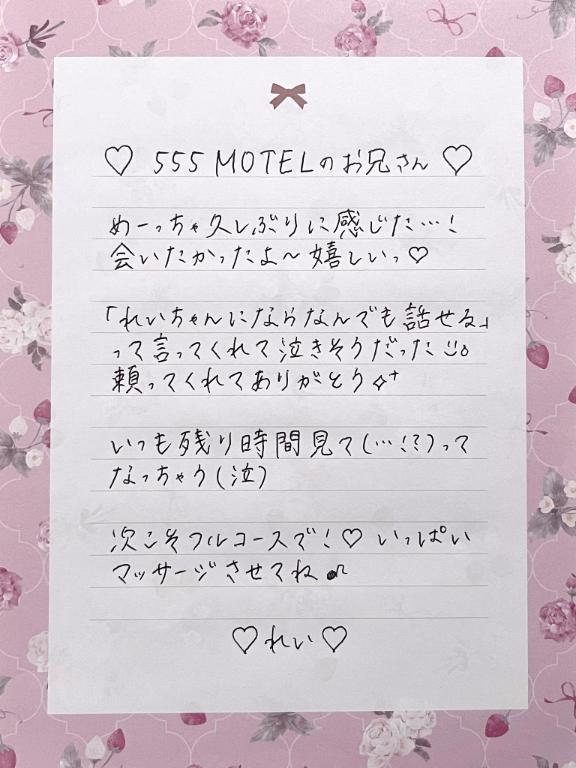 ♡ 555 MOTELのお兄さん ♡
めーっちゃ久しぶりに感じた…!
会いたかったよ〜嬉しいっ♡
「れいちゃんにならなんでも話せる」
って言ってくれて泣きそうだった
頼ってくれてありがとう✧⁺
いつも残り時間見て(…!?)って
なっちゃう(泣)
次こそフルコースで!♡ いっぱい
マッサージさせてね♫
♡れい♡